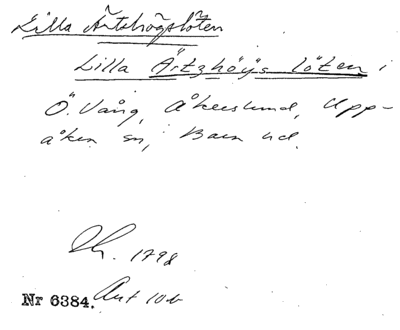 Lilla Ärtshögslöten
Lilla Ärtzhöÿs löten i
Ö. Vång, Åkerslund, Upp-
åkra sn, Bara hd.
1798
Nr 6384. Akt 10b